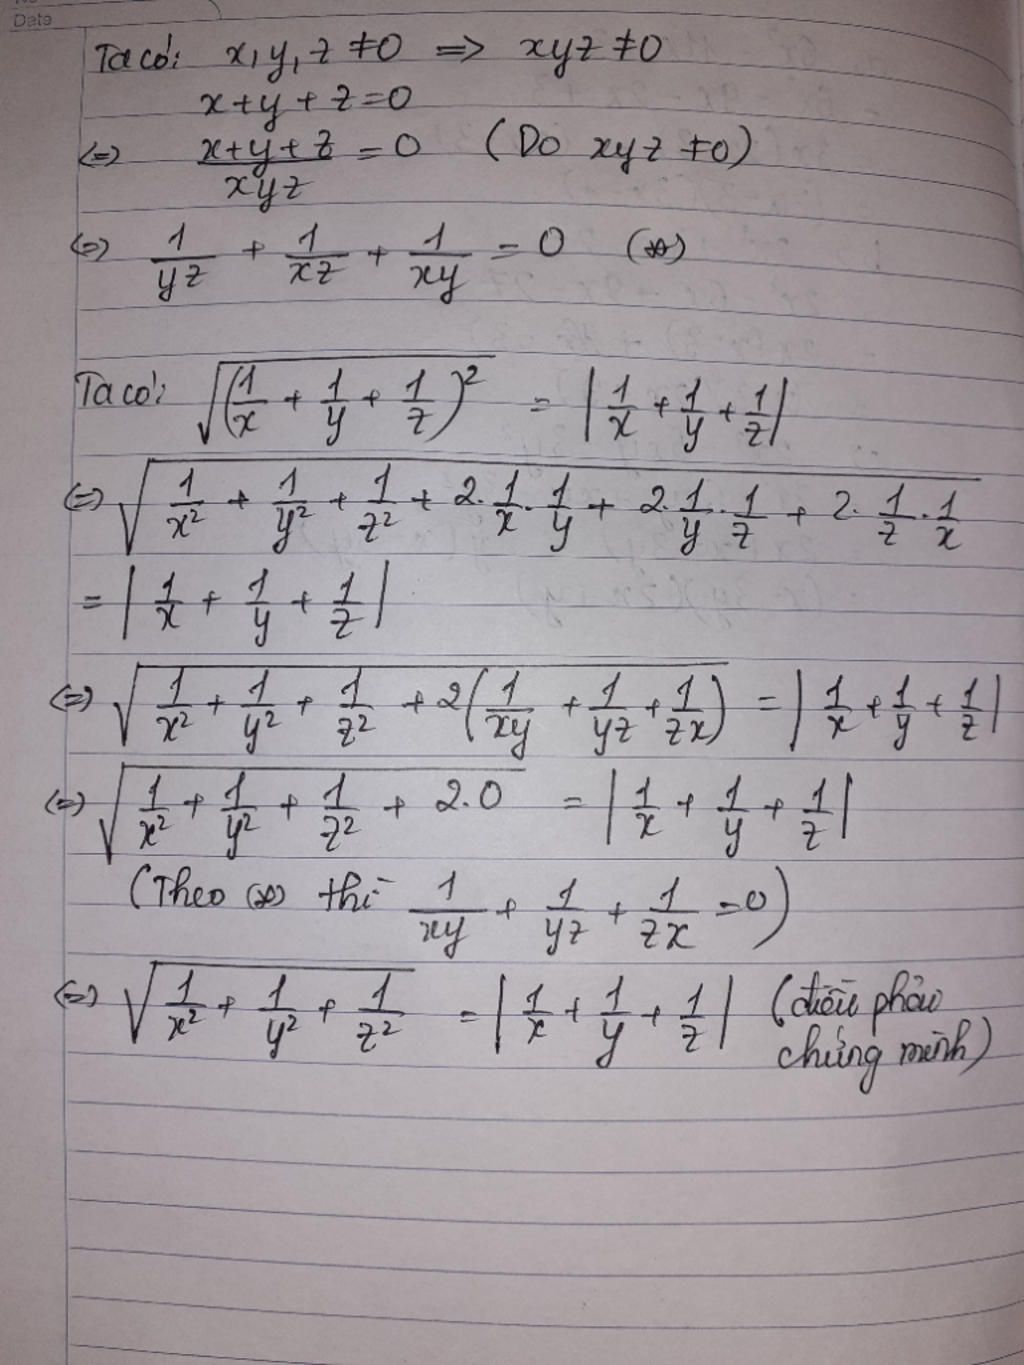 Date
Ta có: x, y, z ≠ 0 => xyz ≠ 0
x + y + z = 0
<=> (x + y + z)/(xyz) = 0 (Do xyz ≠ 0)
<=> 1/(yz) + 1/(xz) + 1/(xy) = 0 (*)
Ta có: √((1/x + 1/y + 1/z)²) = |1/x + 1/y + 1/z|
<=> √(1/x² + 1/y² + 1/z² + 2.1/x.1/y + 2.1/y.1/z + 2.1/z.1/x)
= |1/x + 1/y + 1/z|
<=> √(1/x² + 1/y² + 1/z² + 2(1/(xy) + 1/(yz) + 1/(zx))) = |1/x + 1/y + 1/z|
<=> √(1/x² + 1/y² + 1/z² + 2.0) = |1/x + 1/y + 1/z|
(Theo (*) thì 1/(xy) + 1/(yz) + 1/(zx) = 0)
<=> √(1/x² + 1/y² + 1/z²) = |1/x + 1/y + 1/z| (điều phải
chứng minh)